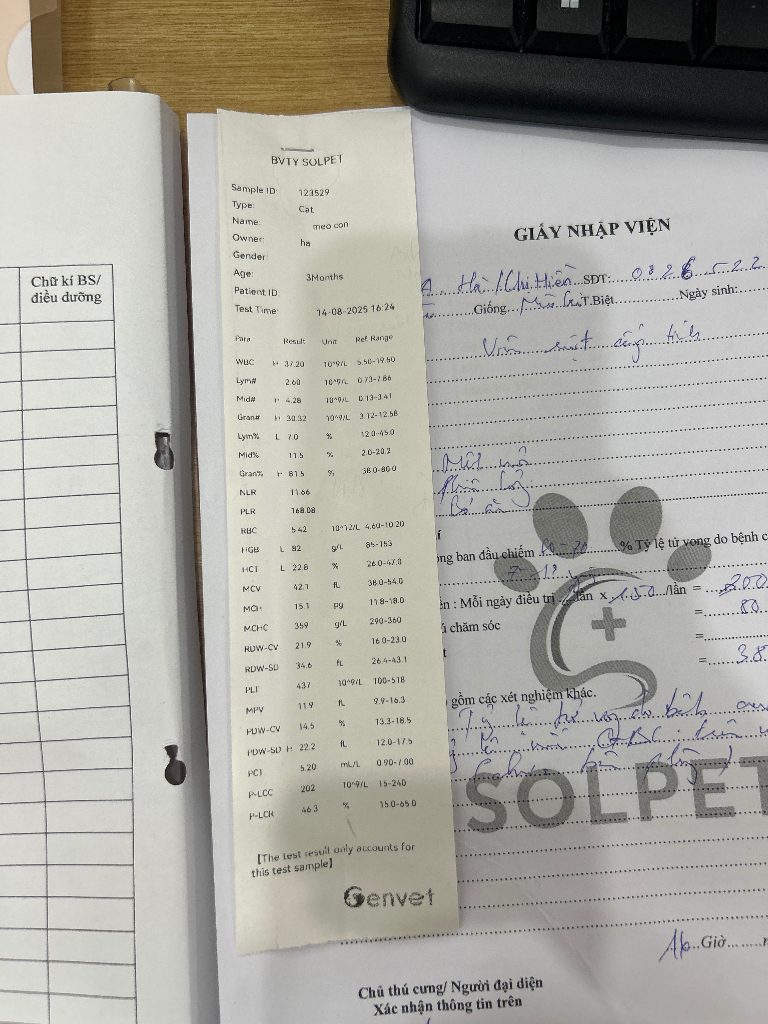 Chữ kí BS/
điều dưỡng
BVTY SOLPET
Sample ID: 123529
Type: Cat
Name: meo con
Owner: ha
Gender:
Age: 3Months
Patient ID:
Test Time: 14-08-2025 16:24
Para Result Unit Ref. Range
WBC H 37.20 10^9/L 5.50-19.50
Lym# 2.60 10^9/L 0.73-7.86
Mid# H 4.28 10^9/L 0.13-3.41
Gran# H 30.32 10^9/L 3.12-12.58
Lym% L 7.0 % 12.0-45.0
Mid% 11.5 % 2.0-20.2
Gran% H 81.5 % 38.0-80.0
NLR 11.66
PLR 168.08
RBC 5.42 10^12/L 4.60-10.20
HGB L 82 g/L 85-153
HCT L 22.8 % 26.0-47.0
MCV 42.1 fL 38.0-54.0
MCH 15.1 pg 11.8-18.0
MCHC 359 g/L 290-360
RDW-CV 21.9 % 16.0-23.0
RDW-SD 34.6 fL 26.4-43.1
PLT 437 10^9/L 100-518
MPV 11.9 fL 9.9-16.3
PDW-CV 14.5 % 13.3-18.5
PDW-SD H 22.2 fL 12.0-17.5
PCT 5.20 mL/L 0.90-7.00
P-LCC 202 10^9/L 15-240
P-LCR 46.3 % 15.0-65.0
【The test result only accounts for
this test sample】
Genvet
GIẤY NHẬP VIỆN
A. Hà / Chị Hiền SĐT: 0826 522
Giống T.Biệt Ngày sinh:
Bỏ ăn
ban đầu chiếm % Tỷ lệ tử vong do bệnh
: Mỗi ngày điều trị lần x 150 /lần = 200
chăm sóc = 80
=
= 38
gồm các xét nghiệm khác.
SOLPET
Giờ
Chủ thú cưng/ Người đại diện
Xác nhận thông tin trên